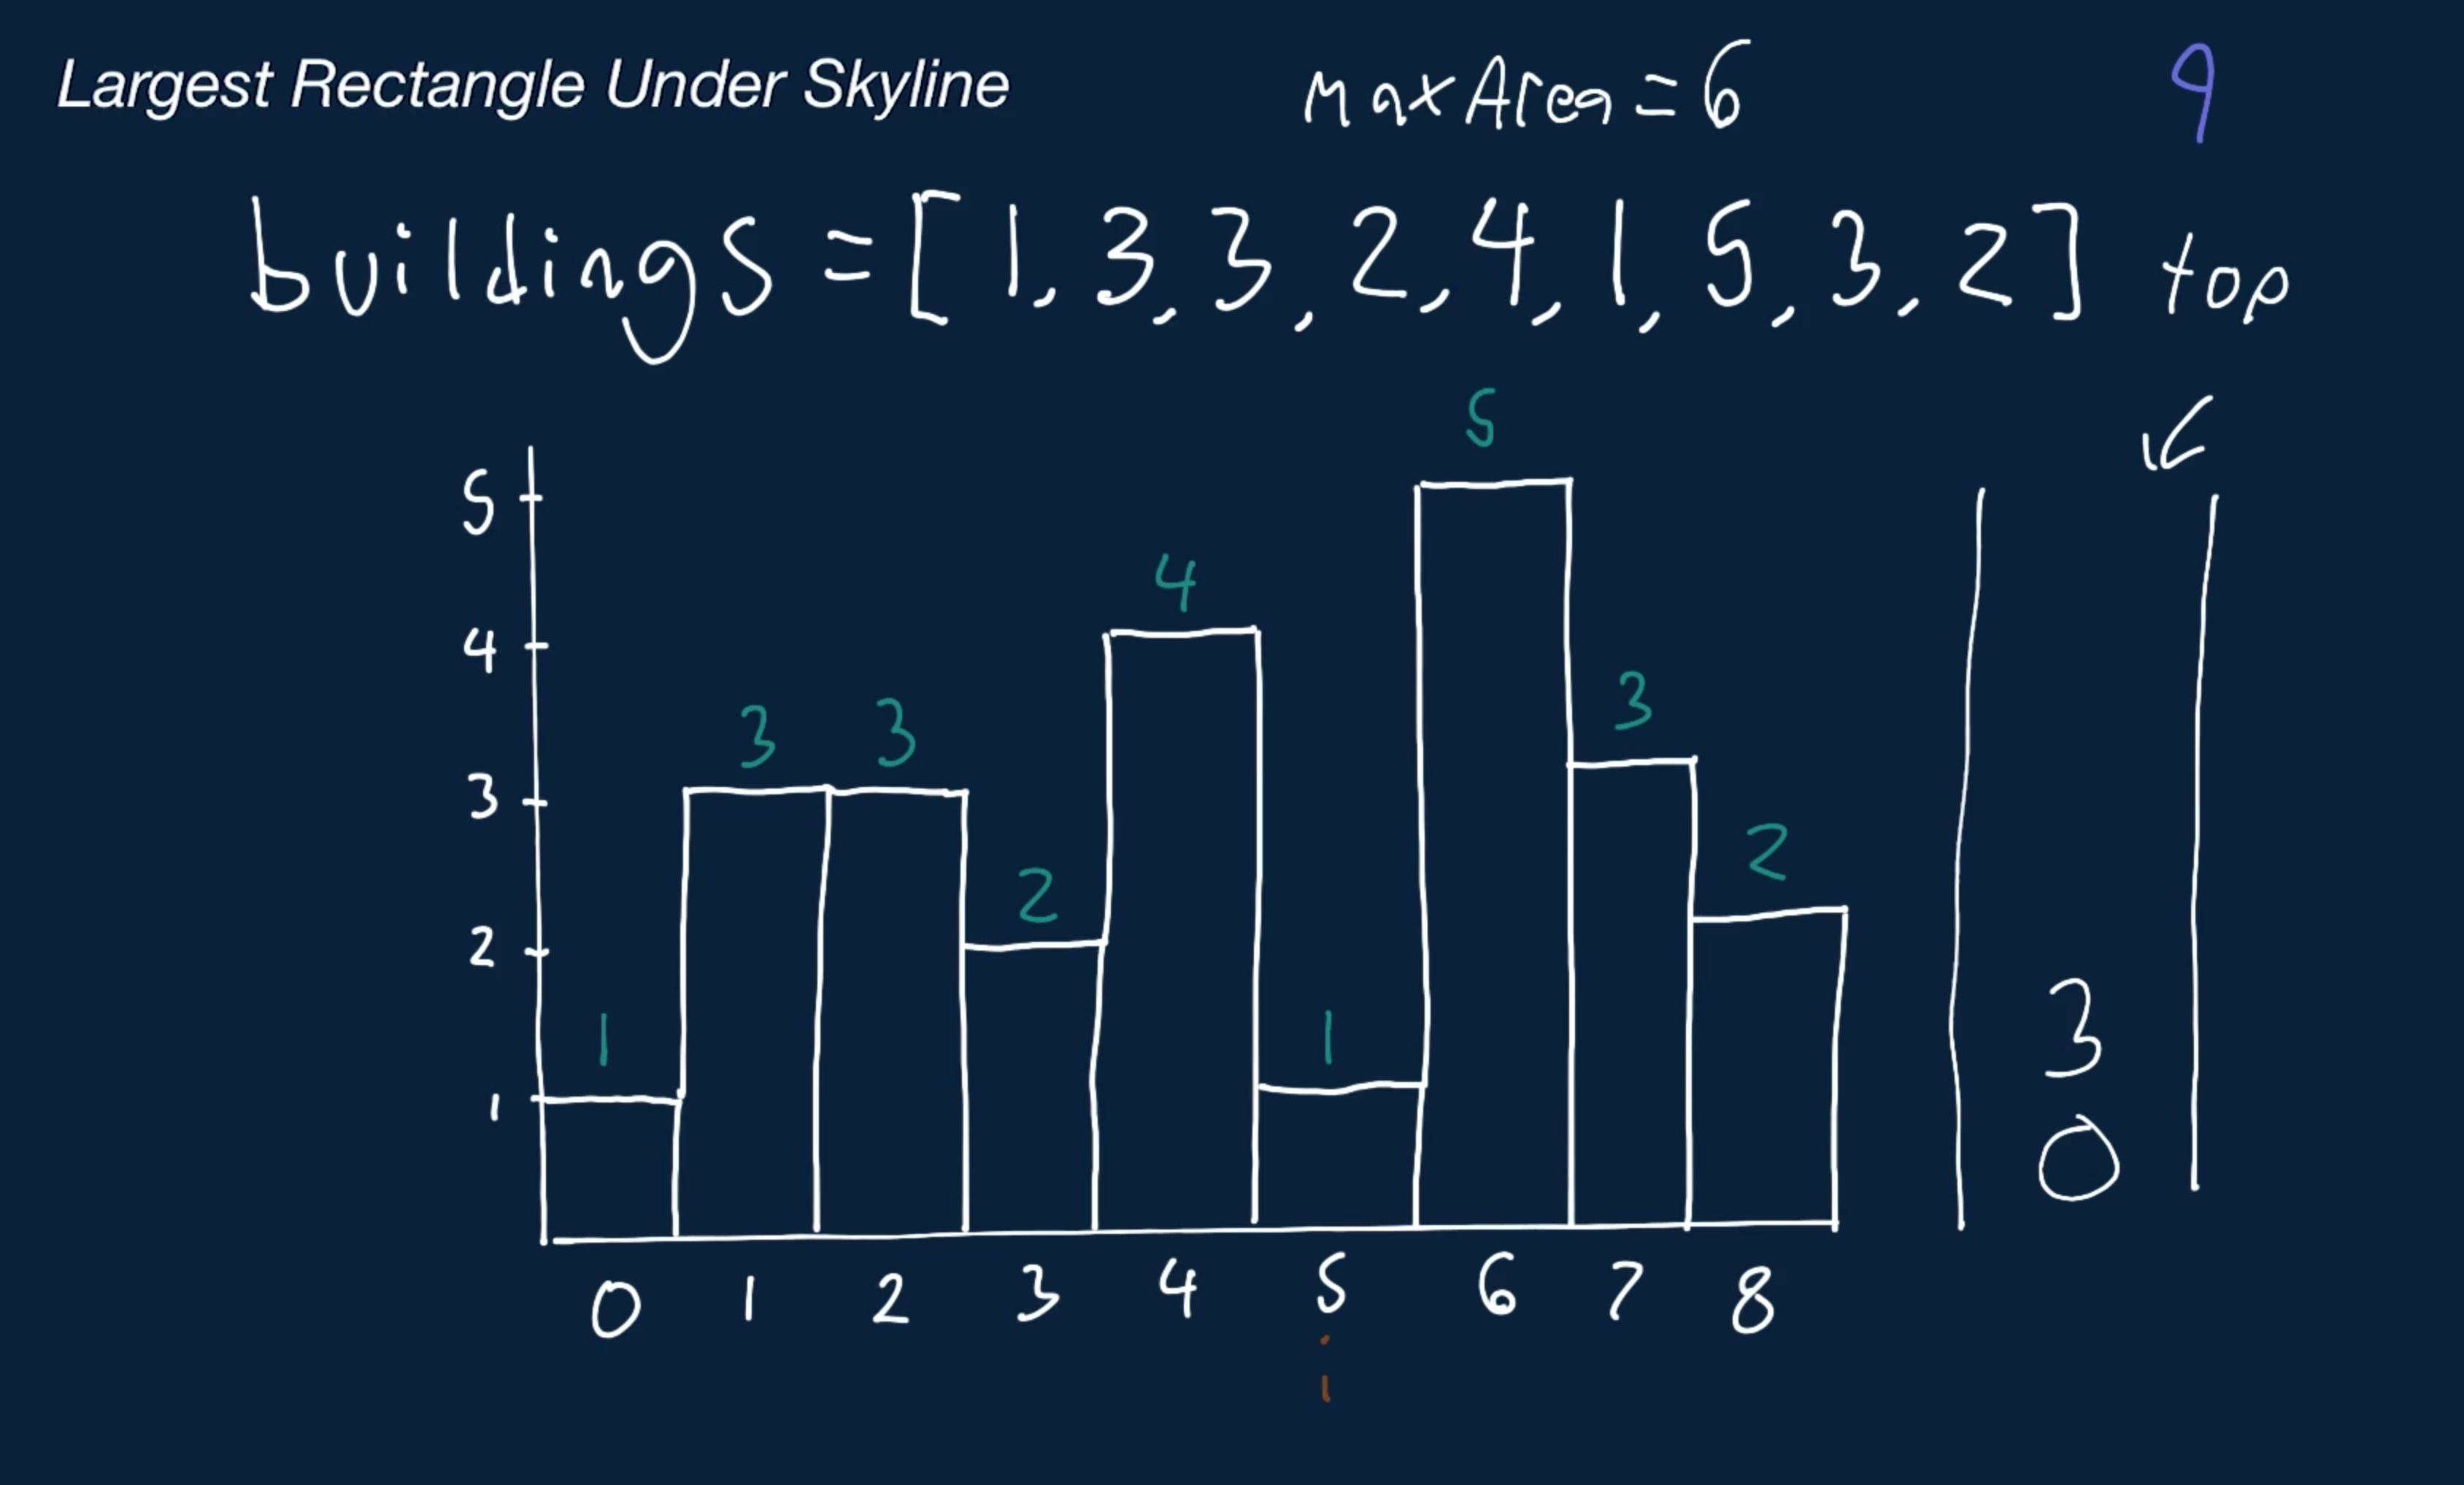 Largest Rectangle Under Skyline MaxArea = 6 9
buildings = [1, 3, 3, 2, 4, 1, 5, 3, 2] top
5
5
4
4
3
3 3
3
2
2
2
1 1
1
3
0
0 1 2 3 4 5 6 7 8
i